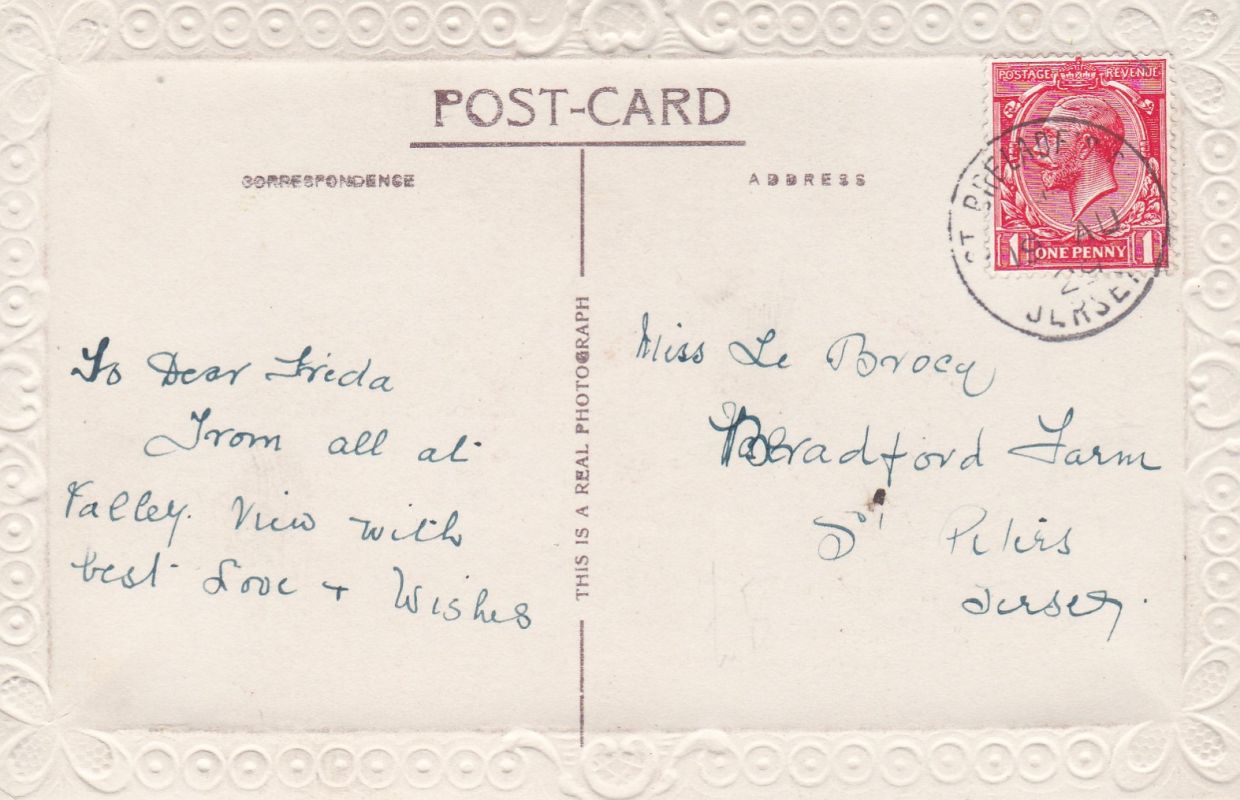 POST-CARD
CORRESPONDENCE
ADDRESS
POSTAGE REVENUE
1 ONE PENNY 1
ST BRELADE'S
19 AU
29
JERSEY
THIS IS A REAL PHOTOGRAPH
To Dear Frida
From all at
Valley View with
best Love + Wishes
Miss Le Brocq
Bradford Farm
St Peters
Jersey.